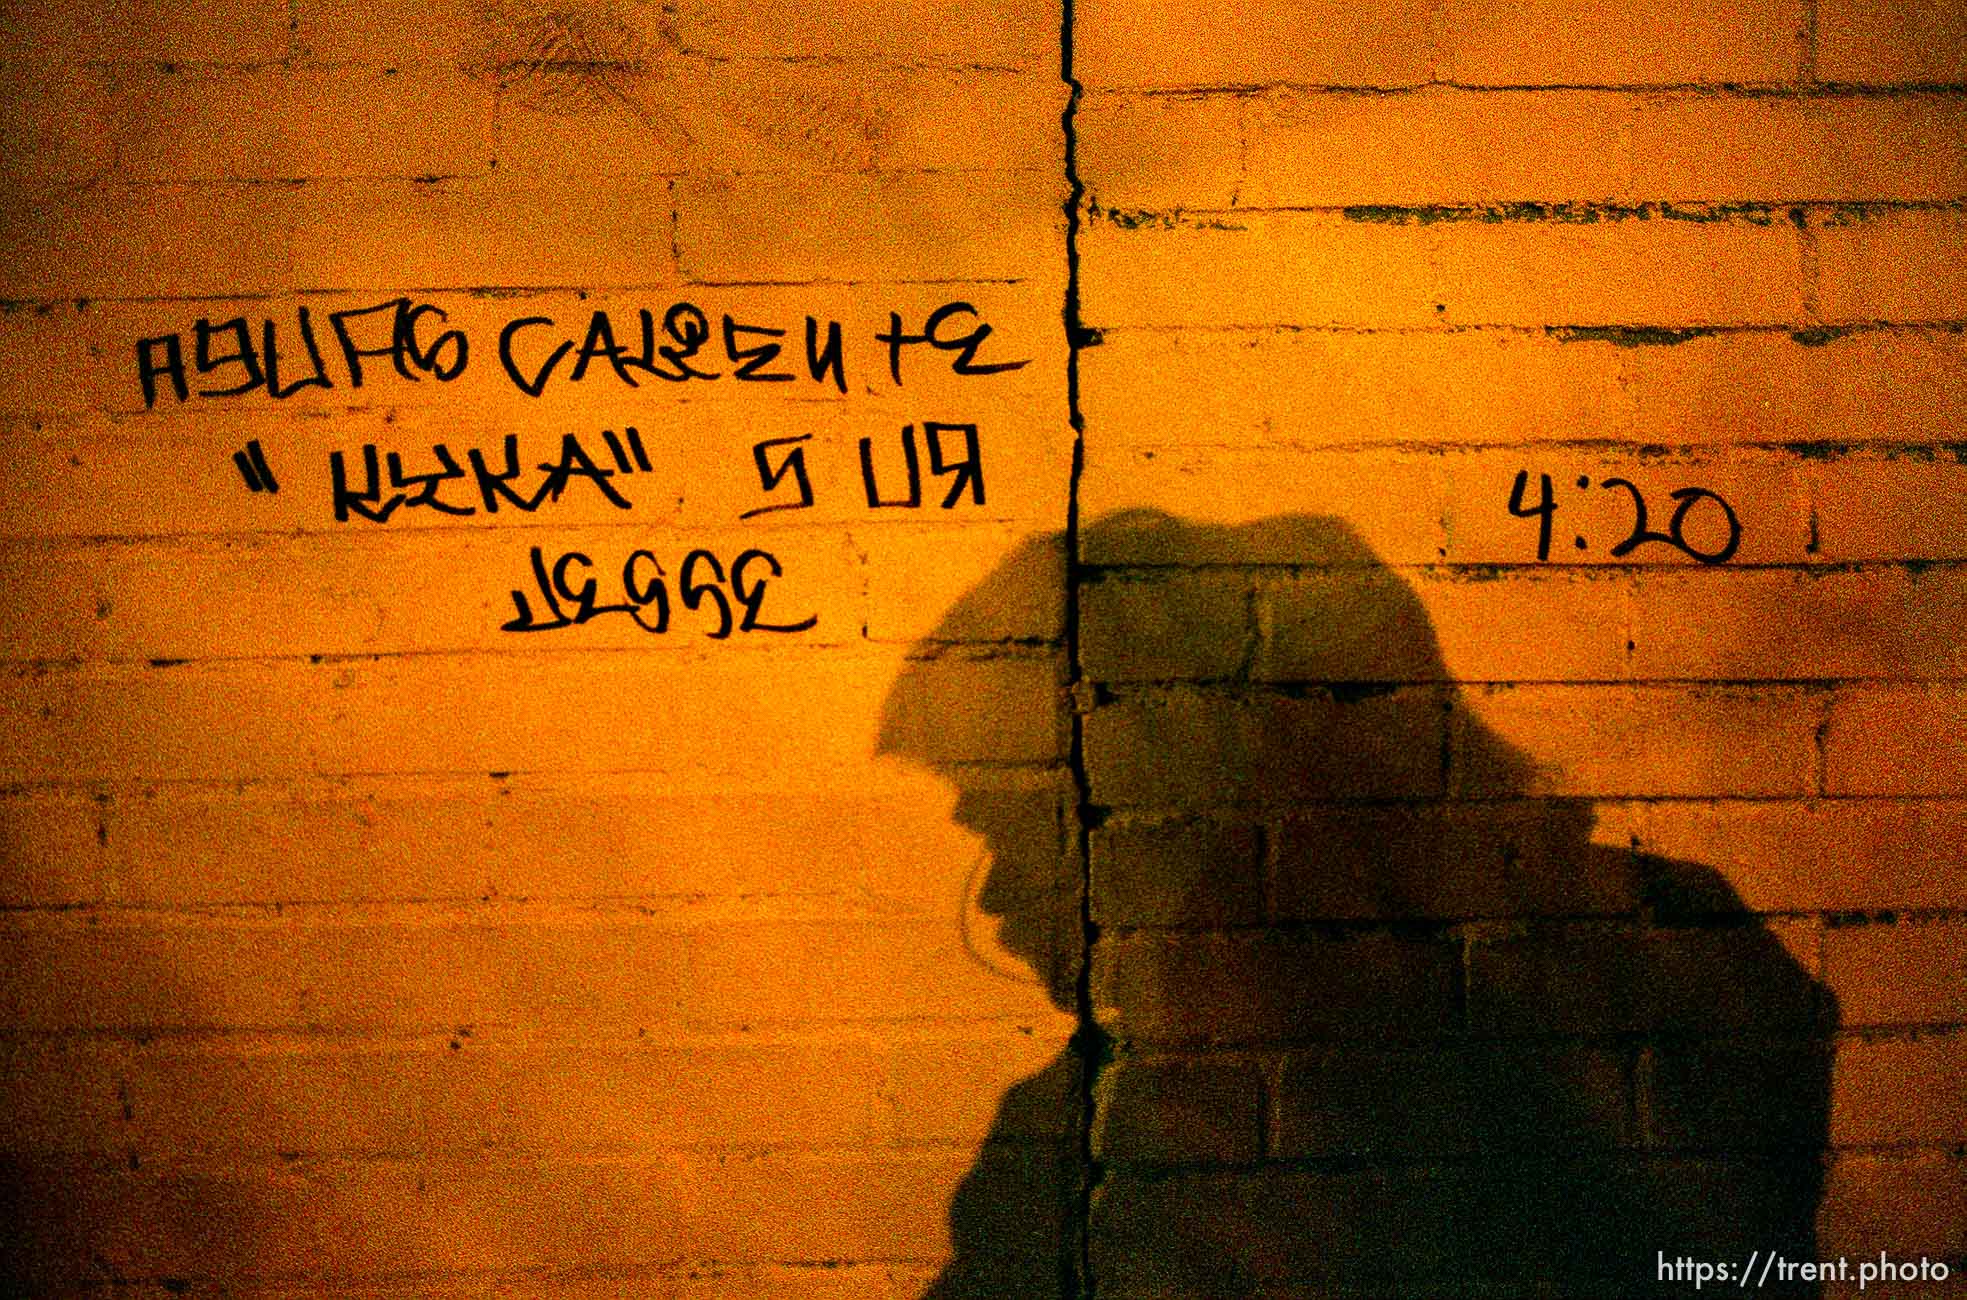 AGUAS CALIENTE
"KYKA" SUR
JESSE
4:20
https://trent.photo